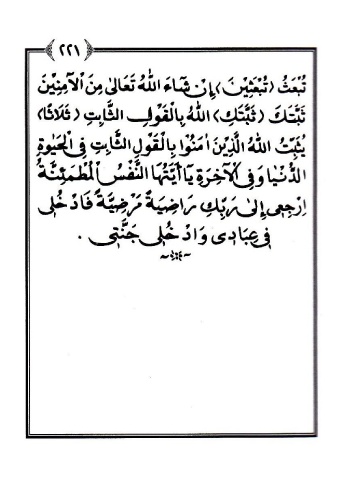 ﴿٢٢١﴾
تُبْعَثُ (تُبْعَثِيْنَ) إِنْ شَاءَ اللهُ تَعَالىٰ مِنَ الْآمِنِيْنَ
ثَبَّتَكَ (ثَبَّتَكِ) اللهُ بِالْقَوْلِ الثَّابِتِ (ثَلَاثًا)
يُثَبِّتُ اللهُ الَّذِيْنَ اٰمَنُوْا بِالْقَوْلِ الثَّابِتِ فِي الْحَيٰوةِ
الدُّنْيَا وَفِي الْآخِرَةِ يَا أَيَّتُهَا النَّفْسُ الْمُطْمَئِنَّةُ
اِرْجِعِي إِلىٰ رَبِّكِ رَاضِيَةً مَرْضِيَّةً فَادْخُلِى
فِى عِبَادِى وَادْخُلِى جَنَّتِى .